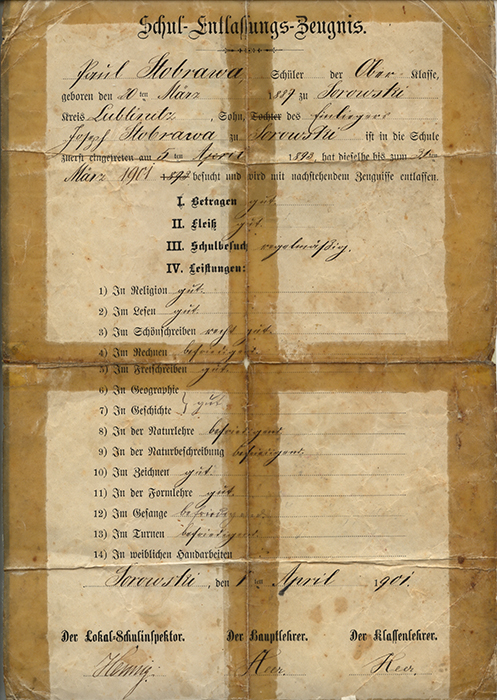 Schul-Entlassungs-Zeugnis.
Paul Stobrawa, Schüler der Ober-Klasse,
geboren den 20ten März 1887 zu Sorowski
Kreis Lublinitz, Sohn, Tochter des Einliegers
Josef Stobrawa zu Sorowski ist in die Schule
zuerst eingetreten am 5ten April 1893, hat dieselbe bis zum
März 1901 189 besucht und wird mit nachstehendem Zeugnisse entlassen.
I. Betragen gut.
II. Fleiß gut.
III. Schulbesuch regelmäßig.
IV. Leistungen:
1) In Religion gut.
2) Im Lesen gut.
3) Im Schönschreiben recht gut.
4) Im Rechnen befriedigend.
5) Im Rechtschreiben gut.
6) In Geographie
7) In Geschichte } gut.
8) In der Naturlehre befriedigend.
9) In der Naturbeschreibung befriedigend.
10) Im Zeichnen gut.
11) In der Formlehre gut.
12) Im Gesange befriedigend.
13) Im Turnen befriedigend.
14) In weiblichen Handarbeiten
Sorowski, den 1ten April 1901.
Der Lokal-Schulinspektor. Der Hauptlehrer. Der Klassenlehrer.